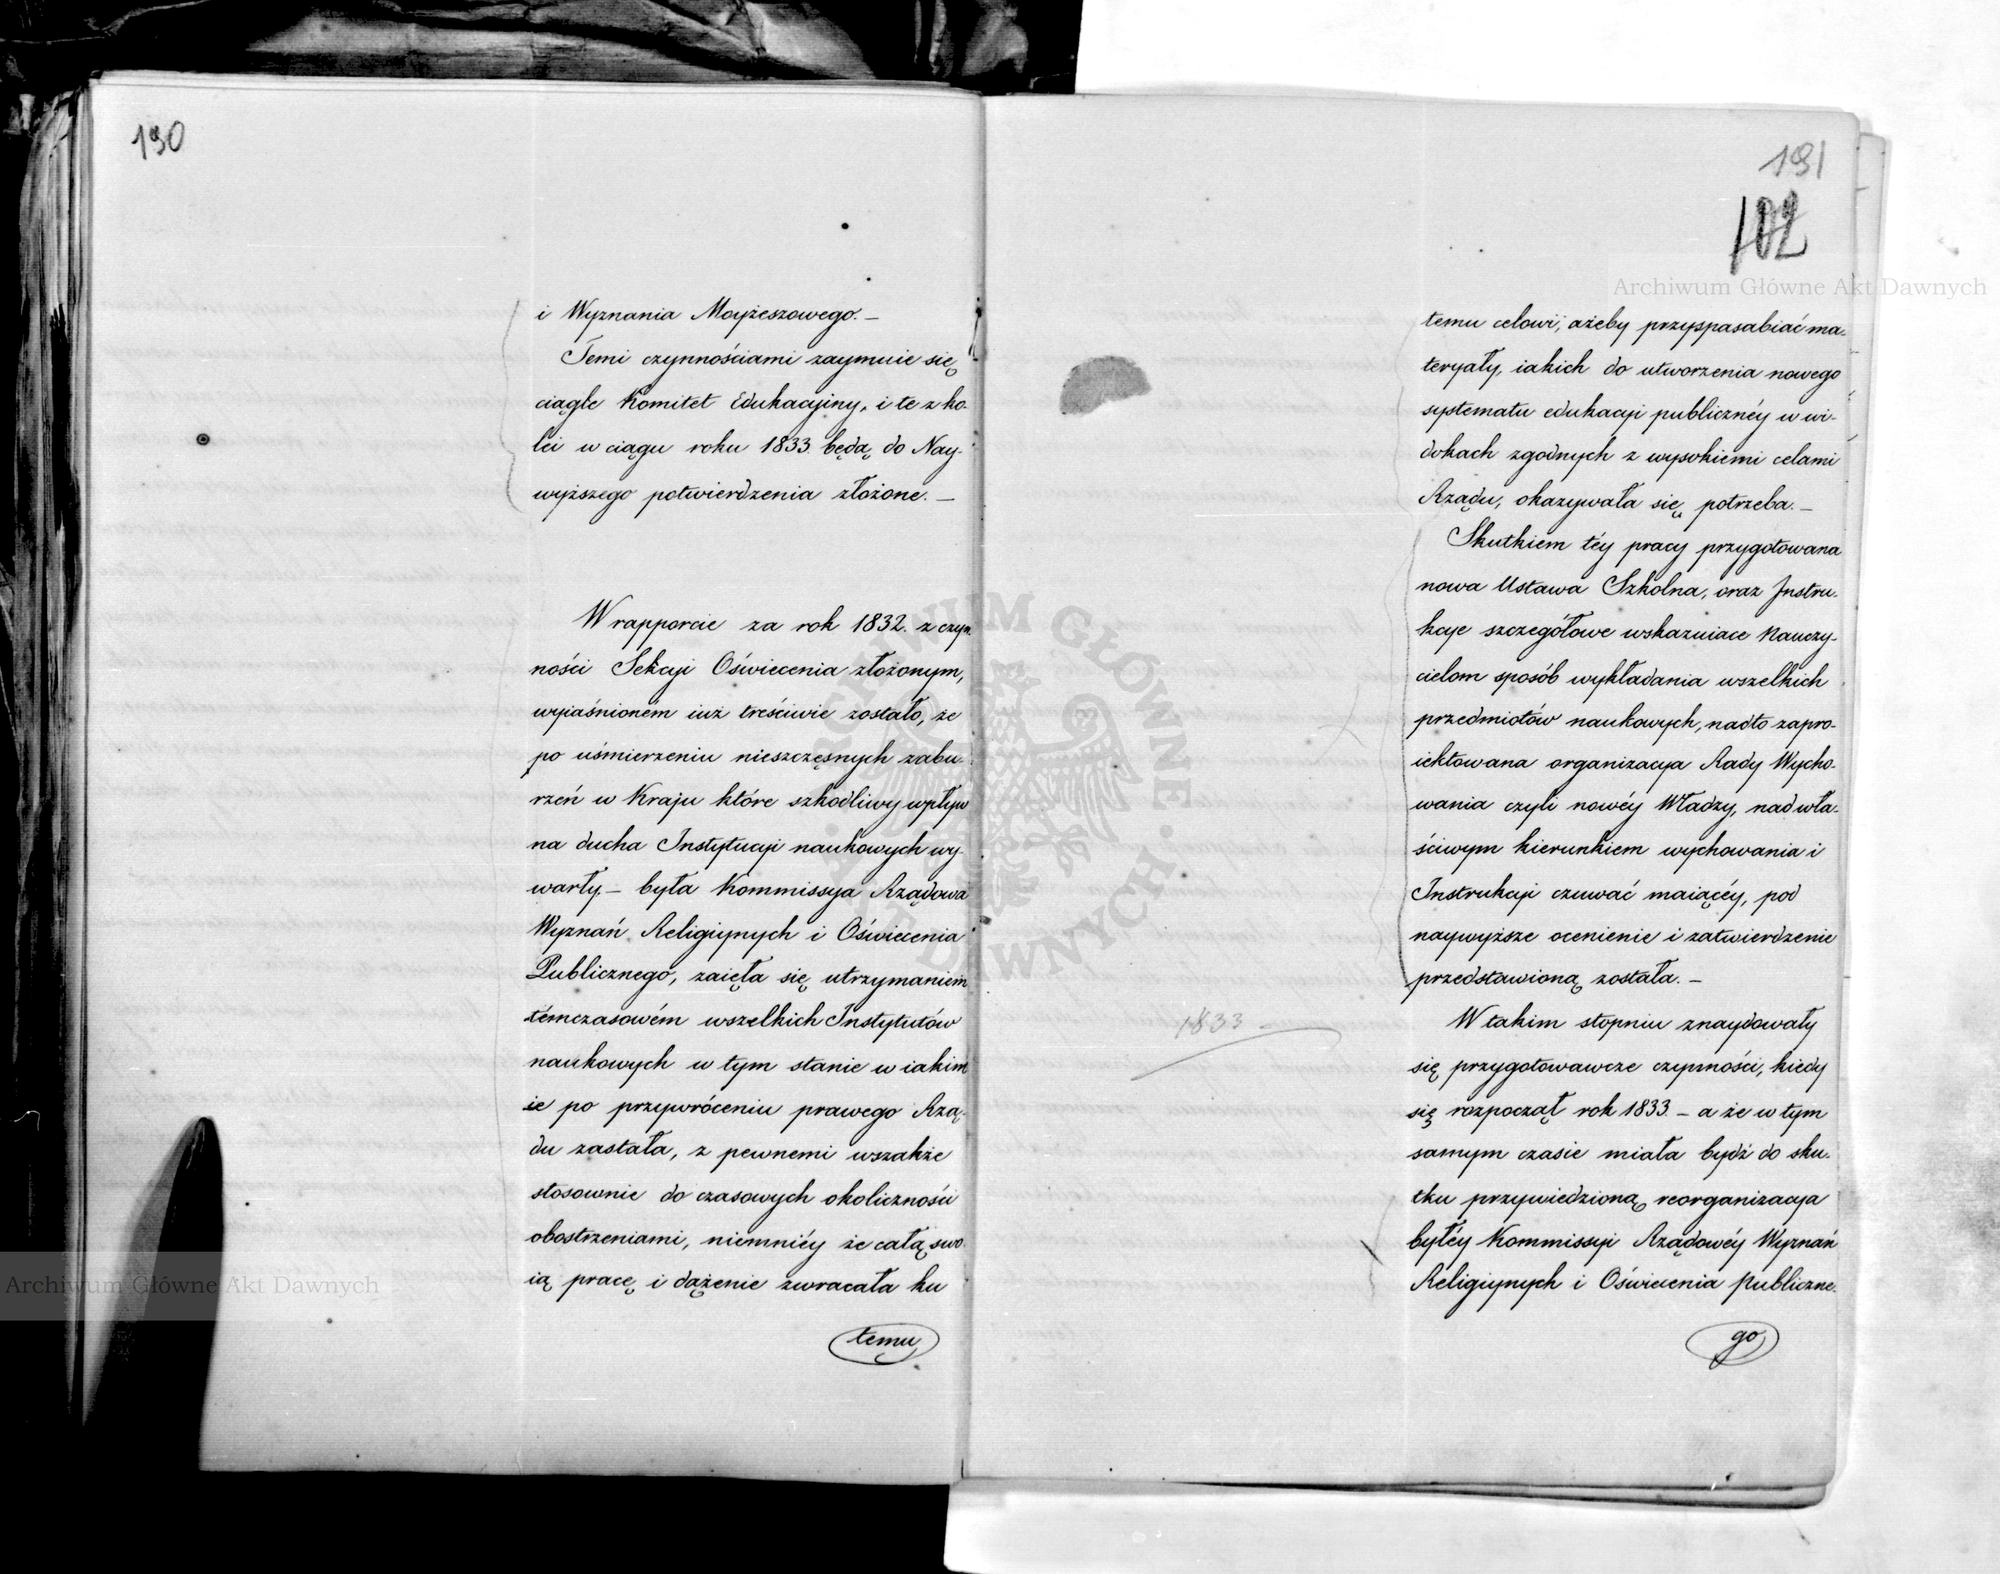 190
i Wyznania Moyżeszowego. —
Temi czynnościami zaymuie się
ciągle Komitet Edukacyiny, i te z ko-
lei w ciągu roku 1833. będą do Nay-
wyższego potwierdzenia złożone. —
W rapporcie za rok 1832. z czyn-
ności Sekcyi Oświecenia złożonym,
wyiaśnionem iuż treściwie zostało, że
po uśmierzeniu nieszczęsnych zabu-
rzeń w Kraju które szkodliwy wpływ
na ducha Instytucyi naukowych wy-
warły. — była Kommissya Rządowa
Wyznań Religiynych i Oświecenia
Publicznego, zaięła się utrzymaniem
témczasowém wszelkich Instytutów
naukowych w tym stanie w iakim
ie po przywróceniu prawego Rzą-
du zastała, z pewnemi wszakże
stosownie do czasowych okoliczności
obostrzeniami, niemniéy że całą swo-
ią pracę i dążenie zwracała ku
temu
191
102
temu celowi, ażeby przysposabiać ma-
teryały, iakich do utworzenia nowego
systematu edukacyi publicznéy w wi-
dokach zgodnych z wysokiemi celami
Rządu, okazywała się potrzeba. —
Skutkiem téy pracy przygotowana
nowa Ustawa Szkolna, oraz Instru-
kcye szczegółowe wskazuiace Nauczy-
cielom sposób wykładania wszelkich
przedmiotów naukowych, nadto zapro-
iektowana organizacya Rady Wycho-
wania czyli nowéy Władzy, nad wła-
ściwym kierunkiem wychowania i
Instrukcyi czuwać maiącéy, pod
naywyższe ocenienie i zatwierdzenie
przedstawioną została. —
1833 —
W takim stopniu znaydowały
się przygotowawcze czynności, kiedy
się rozpoczął rok 1833 — a że w tym
samym czasie miała bydź do sku-
tku przywiedzioną reorganizacya
byłéy Kommissyi Rządowéy Wyznań
Religiynych i Oświecenia Publiczne-
go
ARCHIWUM GŁÓWNE AKT DAWNYCH
Archiwum Główne Akt Dawnych
Archiwum Główne Akt Dawnych